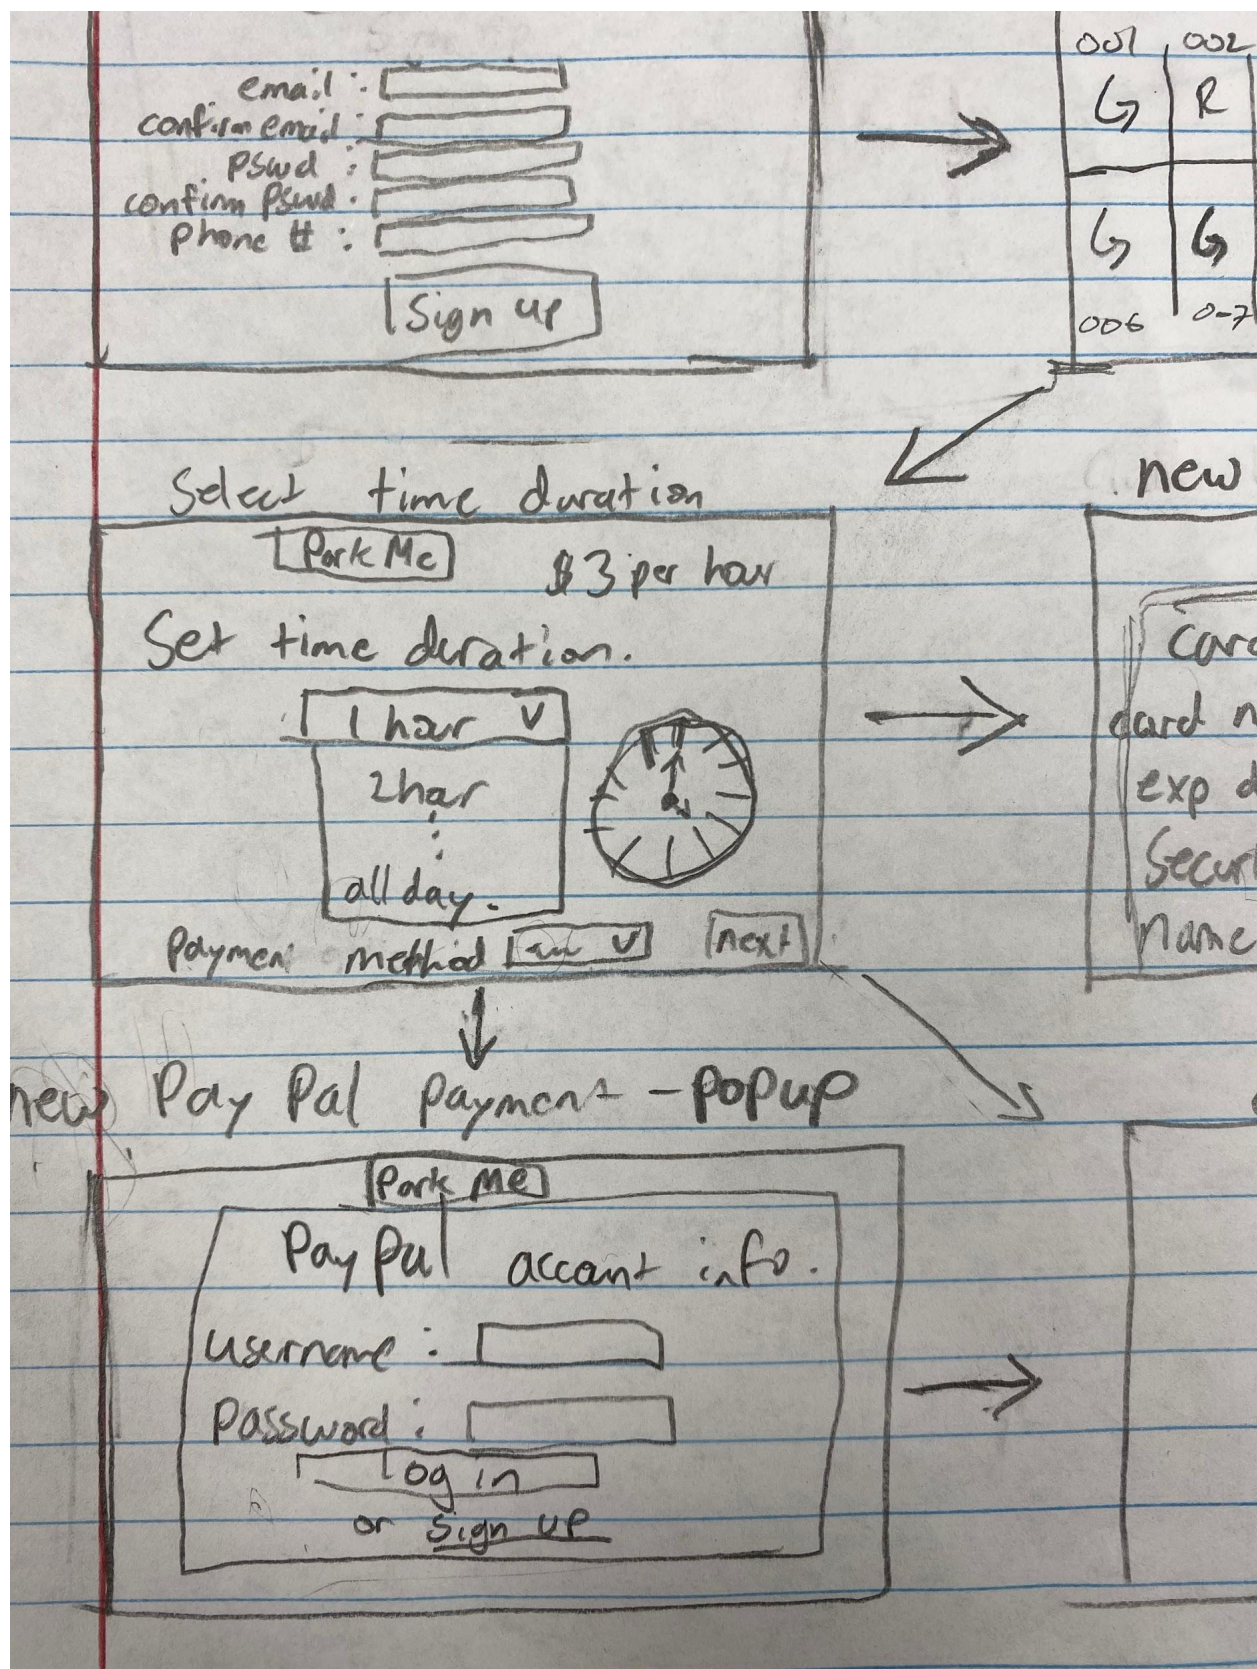 email :
confirm email :
pswd :
confirm pswd.
phone # :
Sign up
001 002
G R
G G
006 0-7
Select time duration
Park Me
$3 per hour
Set time duration.
1 hour V
2 hour
all day.
Payment method V
next
new
card n
exp d
Securi
name
new PayPal payment - popup
Park Me
PayPal account info.
username :
Password :
Log in
or sign up